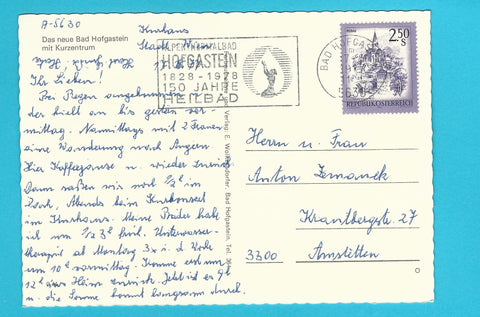 A-5630
Das neue Bad Hofgastein
mit Kurzentrum
Kurhaus
Stadt Wien
Ihr Lieben!
Bei Regen angekommen
der hielt an bis gestern vor-
mittag. Nachmittags mit 2 Frauen
eine Wanderung nach Angern
Hier Kaffeepause u. wieder zurück
Dann saßen wir noch ½ h im
Park. Abends beim Kurkonzert
im Kurhaus. Meine Bäder habe
ich um ½ 3 h früh. Unterwasser-
therapie ab Montag 3x i. d. Woche
um 10 h vormittag. Komme erst um
12 h ins Heim zurück. Jetzt ist es 9 h
u. die Sonne kommt langsam durch.
ALPENTHERMALBAD
HOFGASTEIN
1828-1978
150 JAHRE
HEILBAD
BAD HOFGASTEIN
5630
2.50
S
REPUBLIK ÖSTERREICH
Herrn u. Frau
Anton Zemanek
Krautbergstr. 27
3300 Amstetten